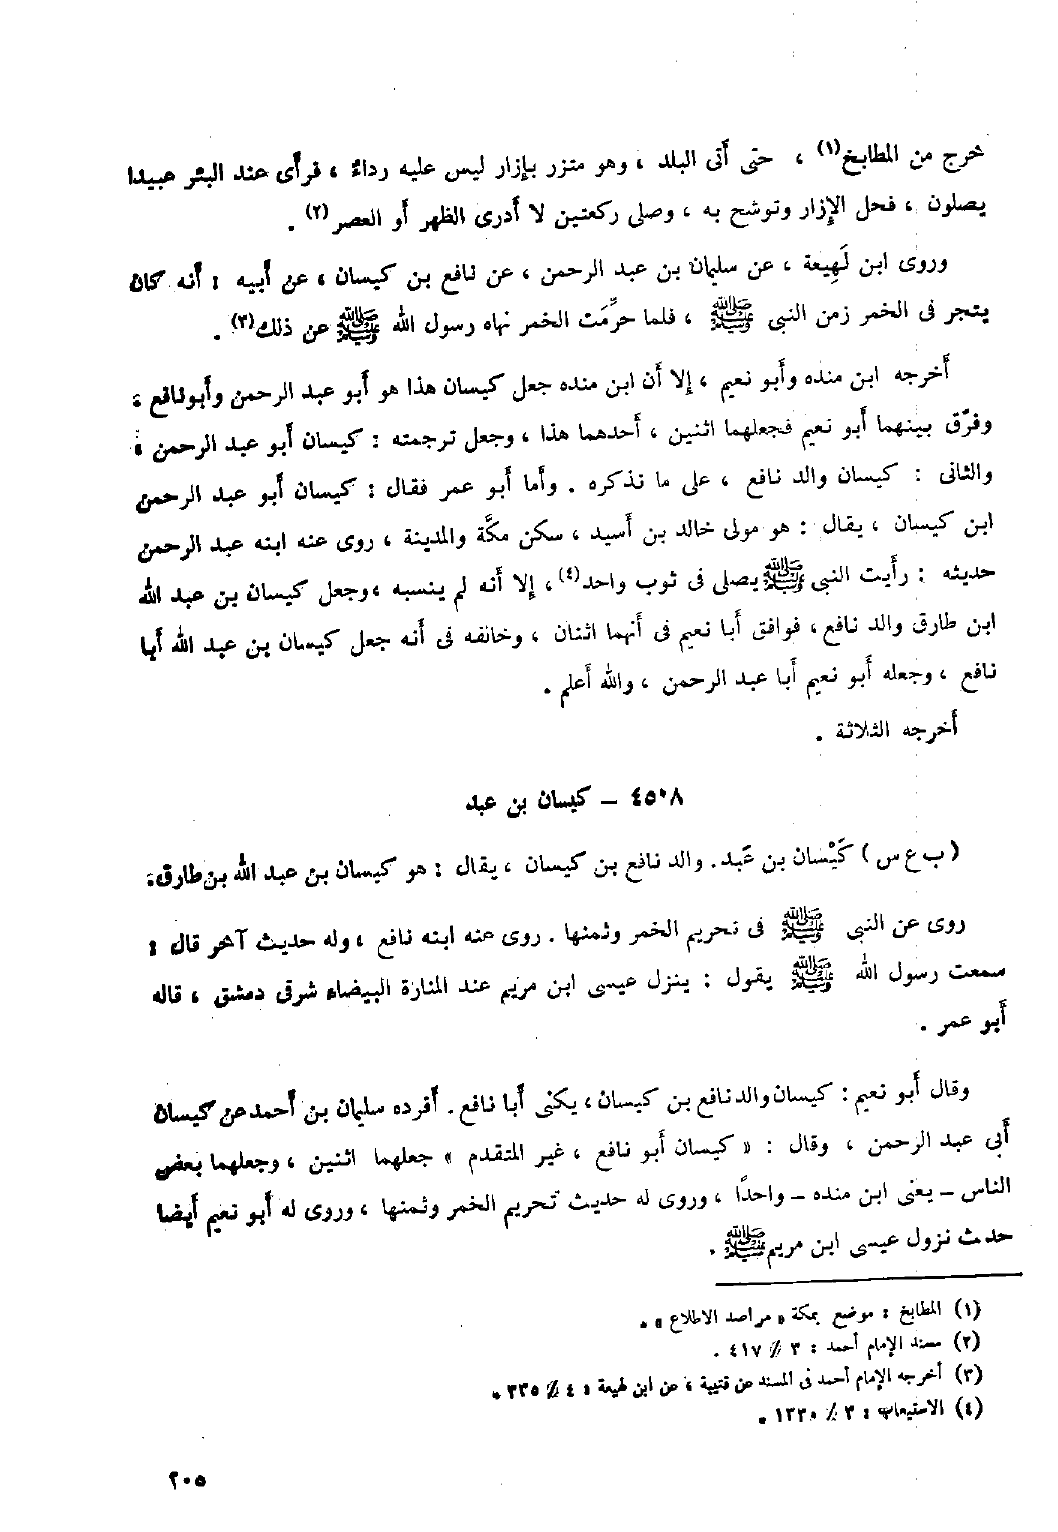 خرج من المطابخ(١) ، حتى أَتى البلد ، وهو متزر بإزار ليس عليه رداءٌ ، فرأى عند البئر عبيدا
يصلون ، فحل الإِزار وتوشح به ، وصلى ركعتين لا أَدرى الظهر أَو العصر(٢) .
وروى ابن لَهِيعة ، عن سليمان بن عبد الرحمن ، عن نافع بن كيسان ، عن أَبيه : أَنه كان
يتجر فى الخمر زمن النبى ﷺ ، فلما حرِّمَت الخمر نهاه رسول الله ﷺ عن ذلك(٣) .
أَخرجه ابن منده وأَبو نعيم ، إلا أَن ابن منده جعل كيسان هذا هو أَبو عبد الرحمن وأَبونافع ،
وفرّق بينهما أَبو نعيم فجعلهما اثنين ، أَحدهما هذا ، وجعل ترجمته : كيسان أَبو عبد الرحمن ،
والثانى : كيسان والد نافع ، على ما نذكره . وأَما أَبو عمر فقال : كيسان أَبو عبد الرحمن
ابن كيسان ، يقال : هو مولى خالد بن أَسيد ، سكن مكَّة والمدينة ، روى عنه ابنه عبد الرحمن
حديثه : رأَيت النبى ﷺ يصلى فى ثوب واحد(٤) ، إلا أَنه لم ينسبه ، وجعل كيسان بن عبد الله
ابن طارق والد نافع ، فوافق أَبا نعيم فى أَنهما اثنان ، وخالفه فى أَنه جعل كيسان بن عبد الله أَبا
نافع ، وجعله أَبو نعيم أَبا عبد الرحمن ، والله أَعلم .
أَخرجه الثلاثة .
٤٥٠٨ – كيسان بن عبد
( ب ع س ) كَيْسان بن عَبد . والد نافع بن كيسان ، يقال : هو كيسان بن عبد الله بن طارق ،
روى عن النبى ﷺ فى تحريم الخمر وثمنها . روى عنه ابنه نافع ، وله حديث آخر قال :
سمعت رسول الله ﷺ يقول : ينزل عيسى ابن مريم عند المنارة البيضاء شرقى دمشق ، قاله
أَبو عمر .
وقال أَبو نعيم : كيسان والد نافع بن كيسان ، يكنى أَبا نافع . أَفرده سليمان بن أَحمد عن كيسان
أَبى عبد الرحمن ، وقال : « كيسان أَبو نافع ، غير المتقدم » جعلهما اثنين ، وجعلهما بعض
الناس – يعنى ابن منده – واحدًا ، وروى له حديث تحريم الخمر وثمنها ، وروى له أَبو نعيم أَيضا
حدث نزول عيسى ابن مريم ﷺ .
(١) المطابخ : موضع بمكة « مراصد الاطلاع » .
(٢) مسند الإمام أحمد : ٣ / ٤١٧ .
(٣) أخرجه الإمام أحمد فى المسند عن قتيبة ، عن ابن لهيعة : ٤ / ٣٣٥ .
(٤) الاستيعاب : ٣ / ١٣٣٠ .
٢٠٥